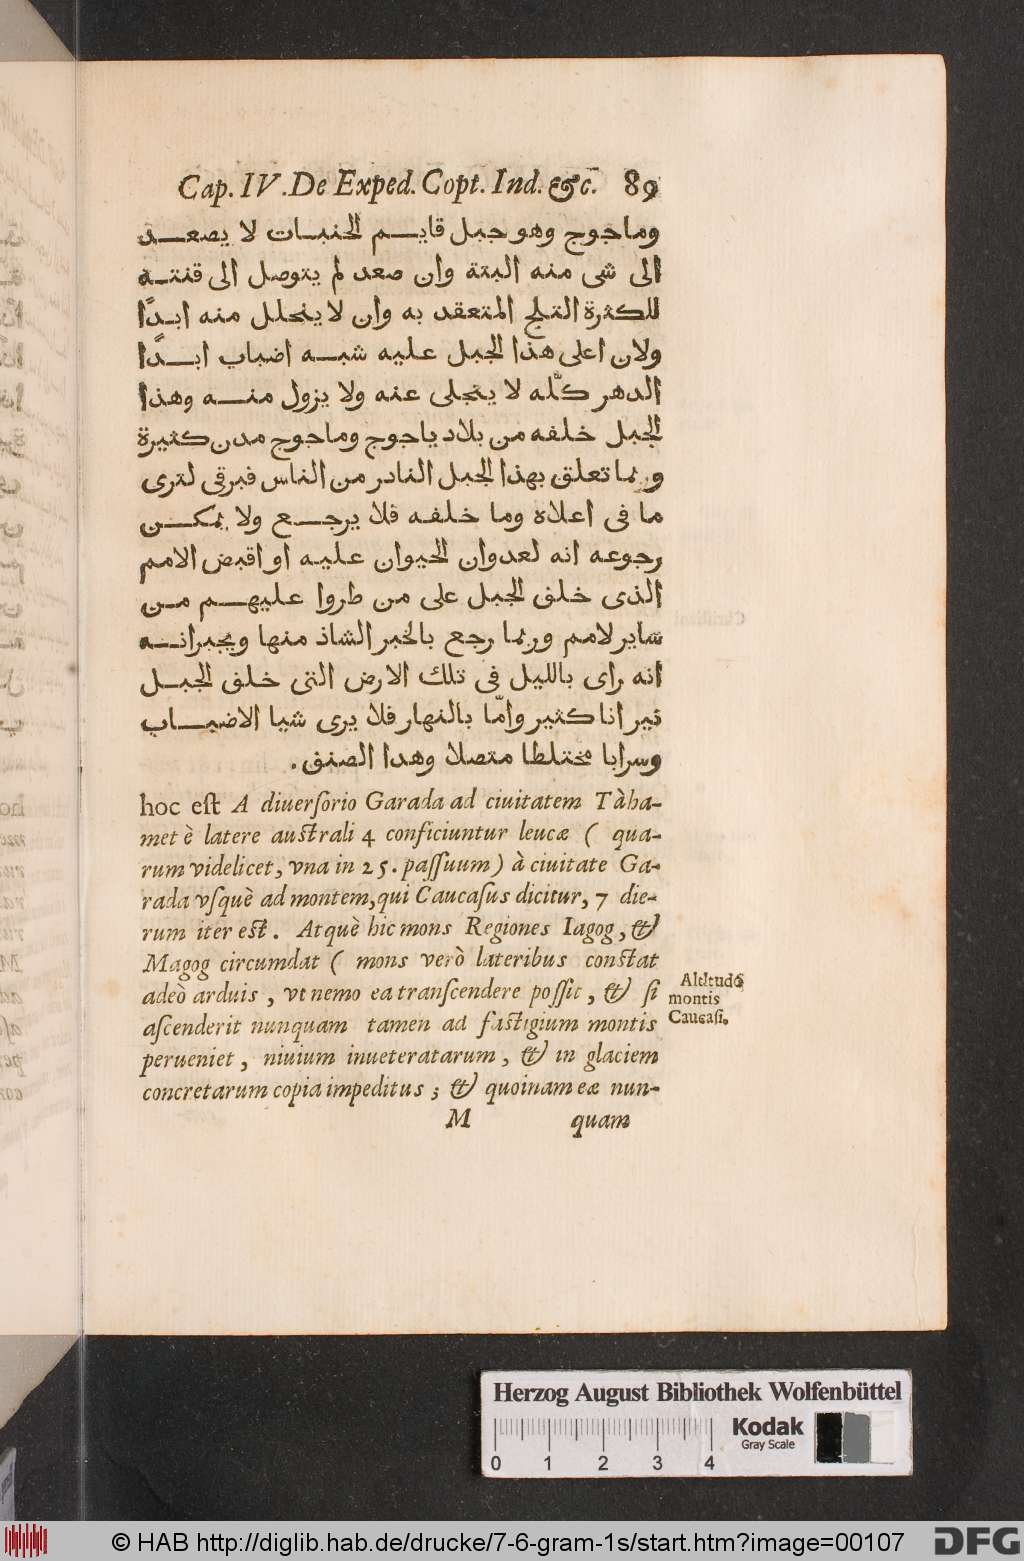 Cap. IV. De Exped. Copt. Ind. &c. 89
وماجوج وهو جبل قايم الجنبات لا يصعد
الى شى منه البتة وان صعد لم يتوصل الى قنته
للكثرة الثلج المتعقد به وان لا ينحلل منه ابدًا
ولان اعلى هذا الجبل عليه شبه اضباب ابدًا
الدهر كلّه لا ينجلى عنه ولا يزول منه وهذا
الجبل خلفه من بلاد ياجوج وماجوج مدن كثيرة
وربما تعلق بهذا الجبل النادر من الناس فيرقى لترى
ما فى اعلاه وما خلفه فلا يرجع ولا يمكن
رجوعه انه لعدوان الحيوان عليه او اقبض الامم
الذى خلف الجبل على من طروا عليهم من
ساير لامم وربما رجع بالخبر الشاذ منها ويخبرانه
انه راى بالليل فى تلك الارض التى خلف الجبل
نيرانا كثير وامّا بالنهار فلا يرى شيا الاضباب
وسرابا مختلطا متصلا وهدا الصنف .
hoc est A diuersorio Garada ad ciuitatem Tàha-
met è latere australi 4 conficiuntur leucæ ( qua-
rum videlicet, vna in 25. passuum) à ciuitate Ga-
rada vsquè ad montem, qui Caucasus dicitur, 7 die-
rum iter est. Atquè hic mons Regiones Iagog, &
Magog circumdat ( mons verò lateribus constat
adeò arduis , vt nemo ea transcendere possit , & si
ascenderit nunquam tamen ad fastigium montis
perueniet , niuium inueteratarum , & in glaciem
concretarum copia impeditus ; & quoinam eæ nun-
Altitudo
montis
Caucasi.
M quam
Herzog August Bibliothek Wolfenbüttel
Kodak
Gray Scale
0 1 2 3 4
© HAB http://diglib.hab.de/drucke/7-6-gram-1s/start.htm?image=00107
DFG